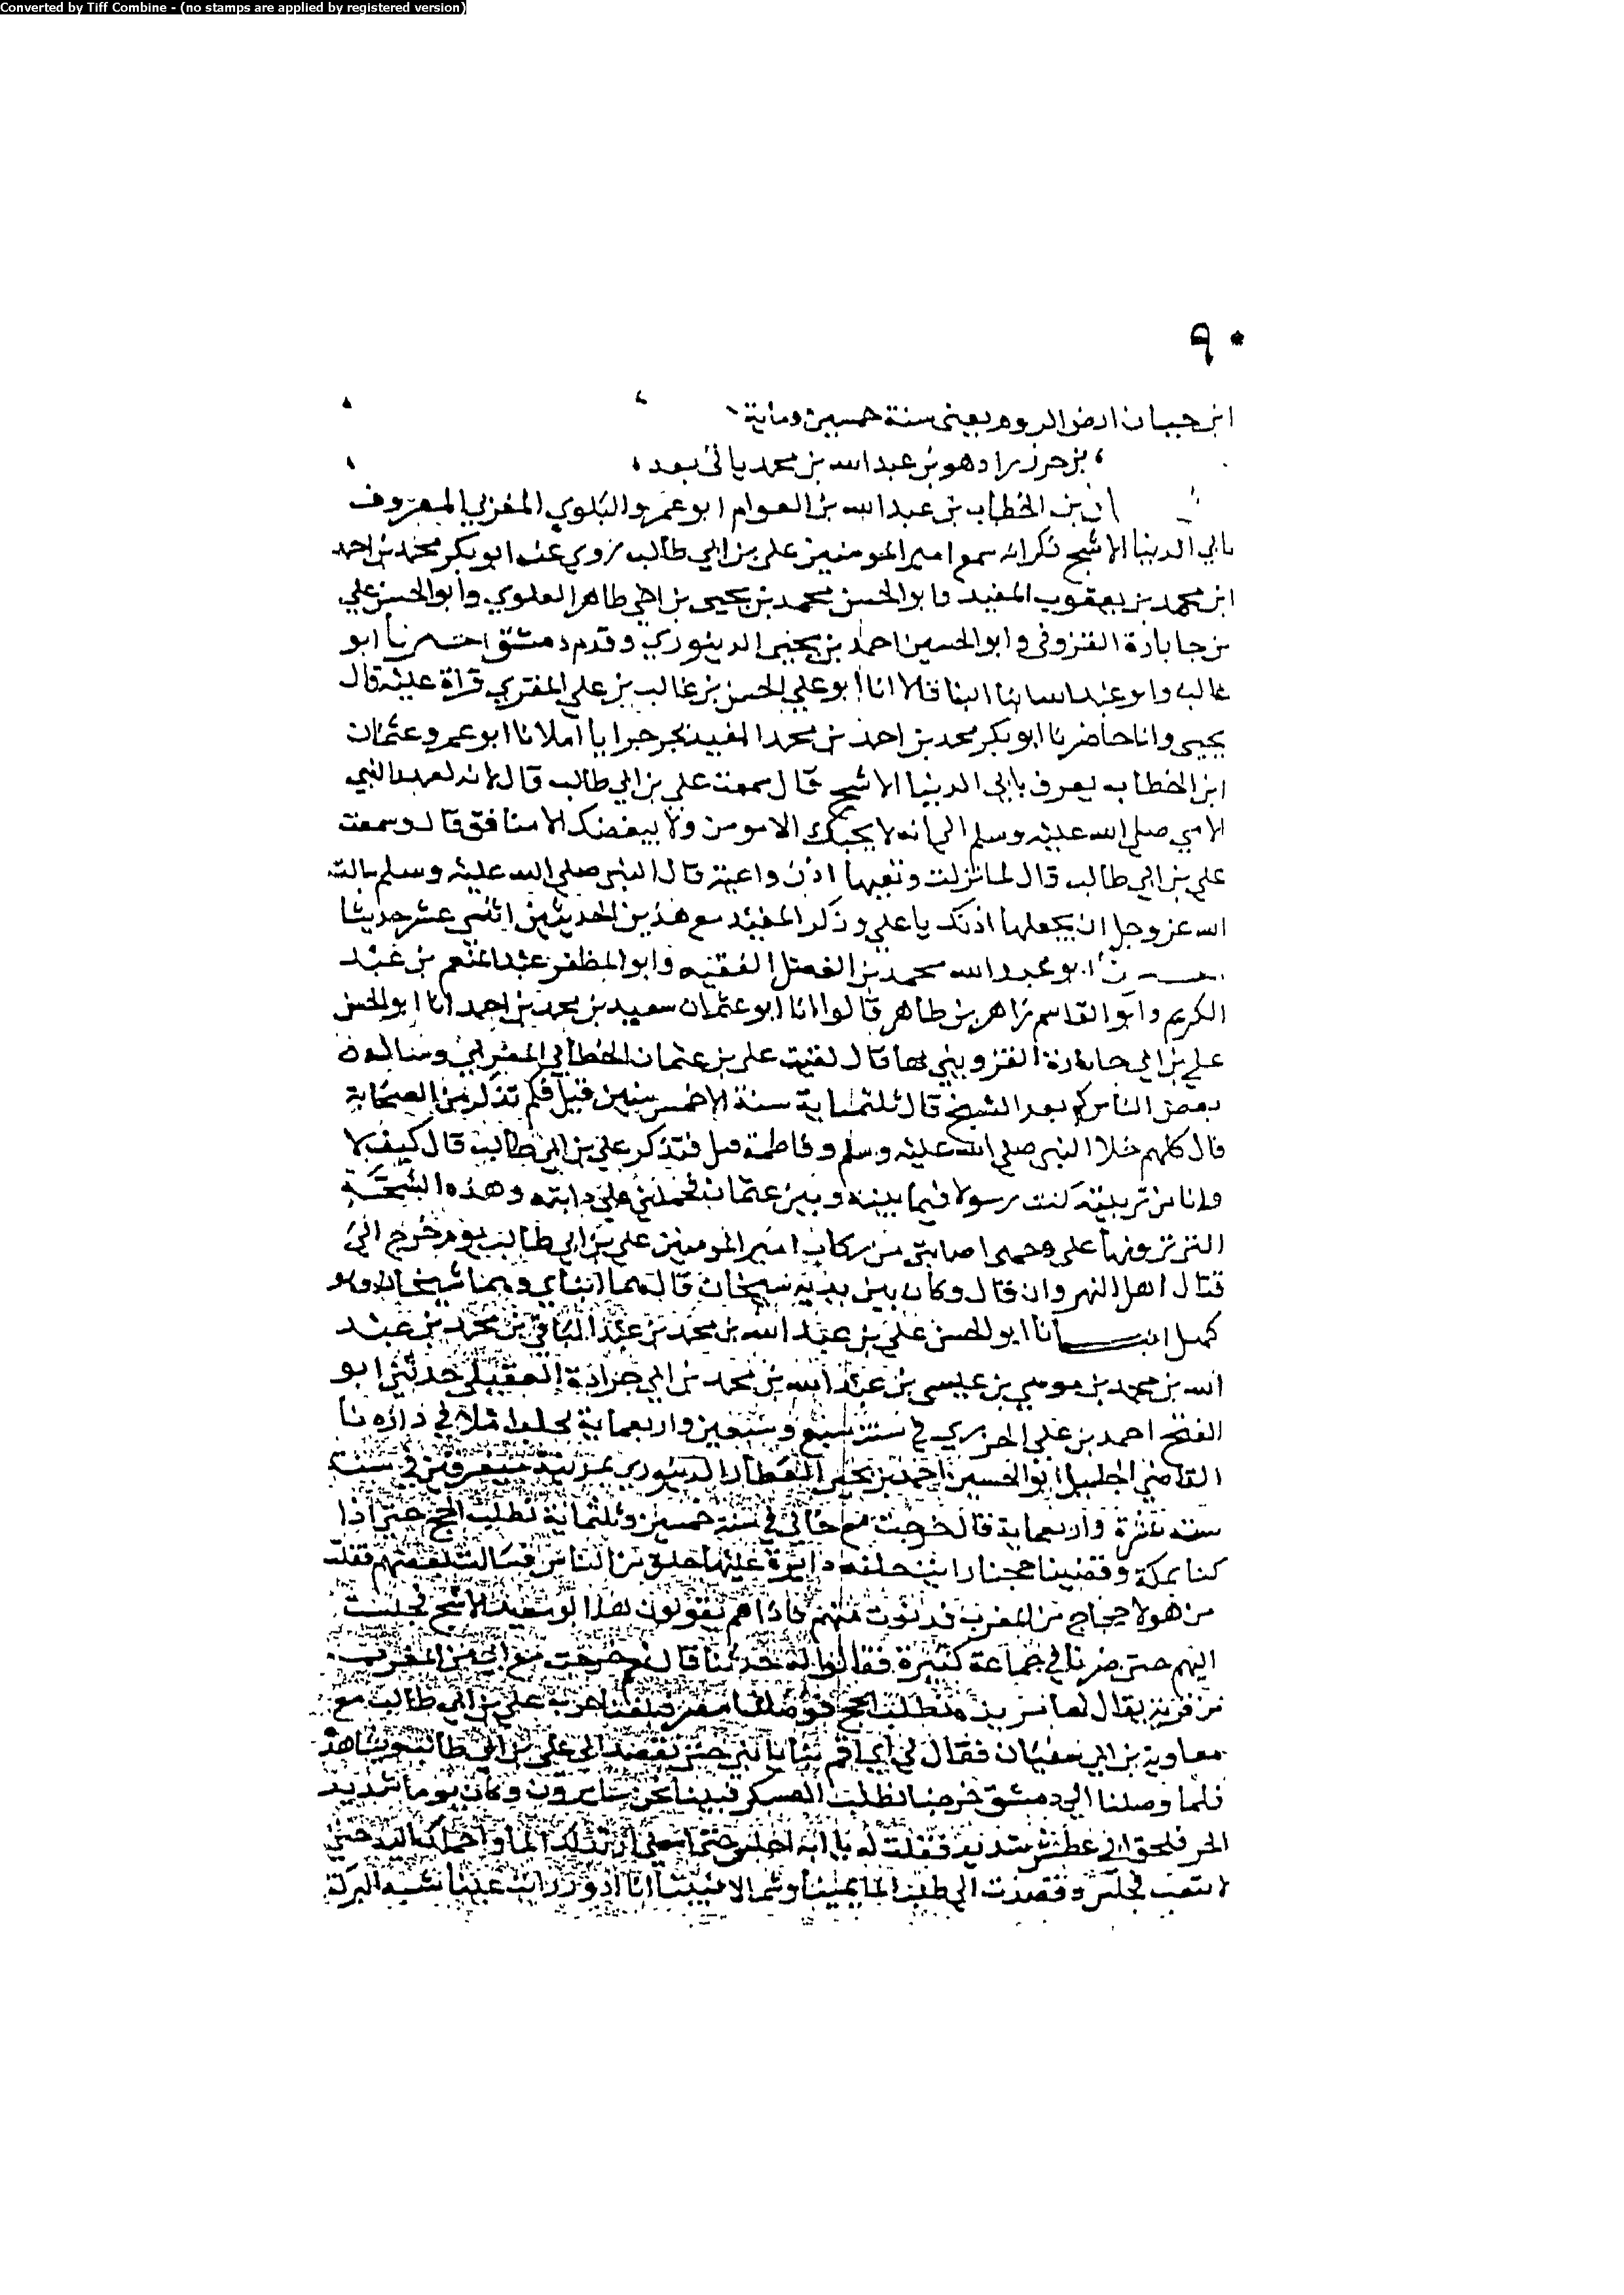 Converted by Tiff Combine - (no stamps are applied by registered version)
٩٠
ابن حبان ارض الروم يعني سنة خمسين وماية
بن حرزاد هو بن عبد الله بن محمد ياتي بعد
ان بن الخطاب بن عبد الله بن العوام ابو عمرو البلوي المغربي المعروف
بابي الدنيا الاشج ذكر انه سمع امير المومنين علي بن ابي طالب روي عنه ابو بكر محمد بن احمد
ابن محمد بن يعقوب المفيد وابو الحسن محمد بن يحيى بن اخي طاهر العلوي وابو الحسن علي
بن جابادة القزوني وابو الحسين احمد بن يحيى الدينوري وقدم دمشق اخبرنا ابو
غالب وابو عبد الله ابنا البنا قالا انا ابو علي الحسن بن غالب بن علي المقري قراة عليه قال
يحيى وانا حاضر نا ابو بكر محمد بن احمد بن محمد المفيد بجرجرايا املا نا ابو عمرو عثمان
ابن الخطاب يعرف بابي الدنيا الاشج قال سمعت علي بن ابي طالب قال لانه لعهد النبي
الامي صلى الله عليه وسلم الي انه لا يحبك الا مومن ولا يبغضك الا منافق قال وسمعت
علي بن ابي طالب قال لما نزلت وتعيها اذن واعية قال النبي صلى الله عليه وسلم سالت
الله عز وجل ان يجعلها اذنك يا علي وذكر المفيد مع هذين الحديثين اثني عشر حديثا
ابو عبد الله محمد بن الفضل الفقيه وابو المظفر عبد المنعم بن عبد
الكريم وابو القاسم زاهر بن طاهر قالوا انا ابو عثمان سعيد بن محمد بن احمد انا ابو الحسن
علي بن ابي جابادة القزويني بها قال لقيت علي بن عثمان الخطابي المغربي وسالوه
بعض الناس كم بعد الشيخ قال ثلثماية سنة الا خمس سنين قيل فكم تذكر من الصحابة
قال كلهم خلا النبي صلى الله عليه وسلم وفاطمة قيل فتذكر علي بن ابي طالب قال كيف لا
وانا من تربيته كنت رسولا فيما بينه وبين عثمان فحملني على دابته وهذه الشجة
التي ترونها على وجهي اصابتني من ركاب امير المومنين علي بن ابي طالب يوم خرج الى
قتال اهل النهروان قال وكان بين يديه شيخان قال هما ابناي وهما شيخان وهو
كهل انا ابو الحسن علي بن عبد الله بن محمد بن عبد الباقي بن محمد بن عبد
الله بن محمد بن موسي بن عيسى بن عبد الله بن محمد بن ابي جرادة العقيلي حدثني ابو
الفتح احمد بن علي الجزري في سنة سبع وسبعين واربعماية بحلب املا في داره نا
القاضي الجليل ابو الحسين احمد بن يحيى العطار الدينوري في سنة
ست عشرة واربعماية قال خرجت مع خالي في سنة خمسين وثلثماية نطلب الحج حتى اذا
كنا بمكة وقضينا حجنا رايت حلقة دايرة عليها خلق من الناس فسالت بعضهم فقلت
من هولا حجاج من المغرب فدنوت منهم فاذا هم يقولون هذا ابو سعيد الاشج فجلست
اليهم حتى صرنا في جماعة كثيرة فقالوا له حدثنا قال نعم خرجت مع ابي من المغرب
من قرية يقال لها نطلب الحج فوصلنا مصر فبلغنا حرب علي بن ابي طالب مع
معاوية بن ابي سفيان فقال لي ابي اقم بنا يا بني حتى نقصد الى علي بن ابي طالب
فلما وصلنا الى دمشق خرجنا نطلب العسكر فبينا نحن سايرون وكان يوما شديد
الحر فلحق ابي عطش شديد فقلت له يا ابه اجلس حتى امضي ارتد لك الما واحمله اليك حتى
لا تتعب فجلس وقصدت الى طلب الما يمينا وشمالا فبينا انا ادور رايت عينا شبه البركة